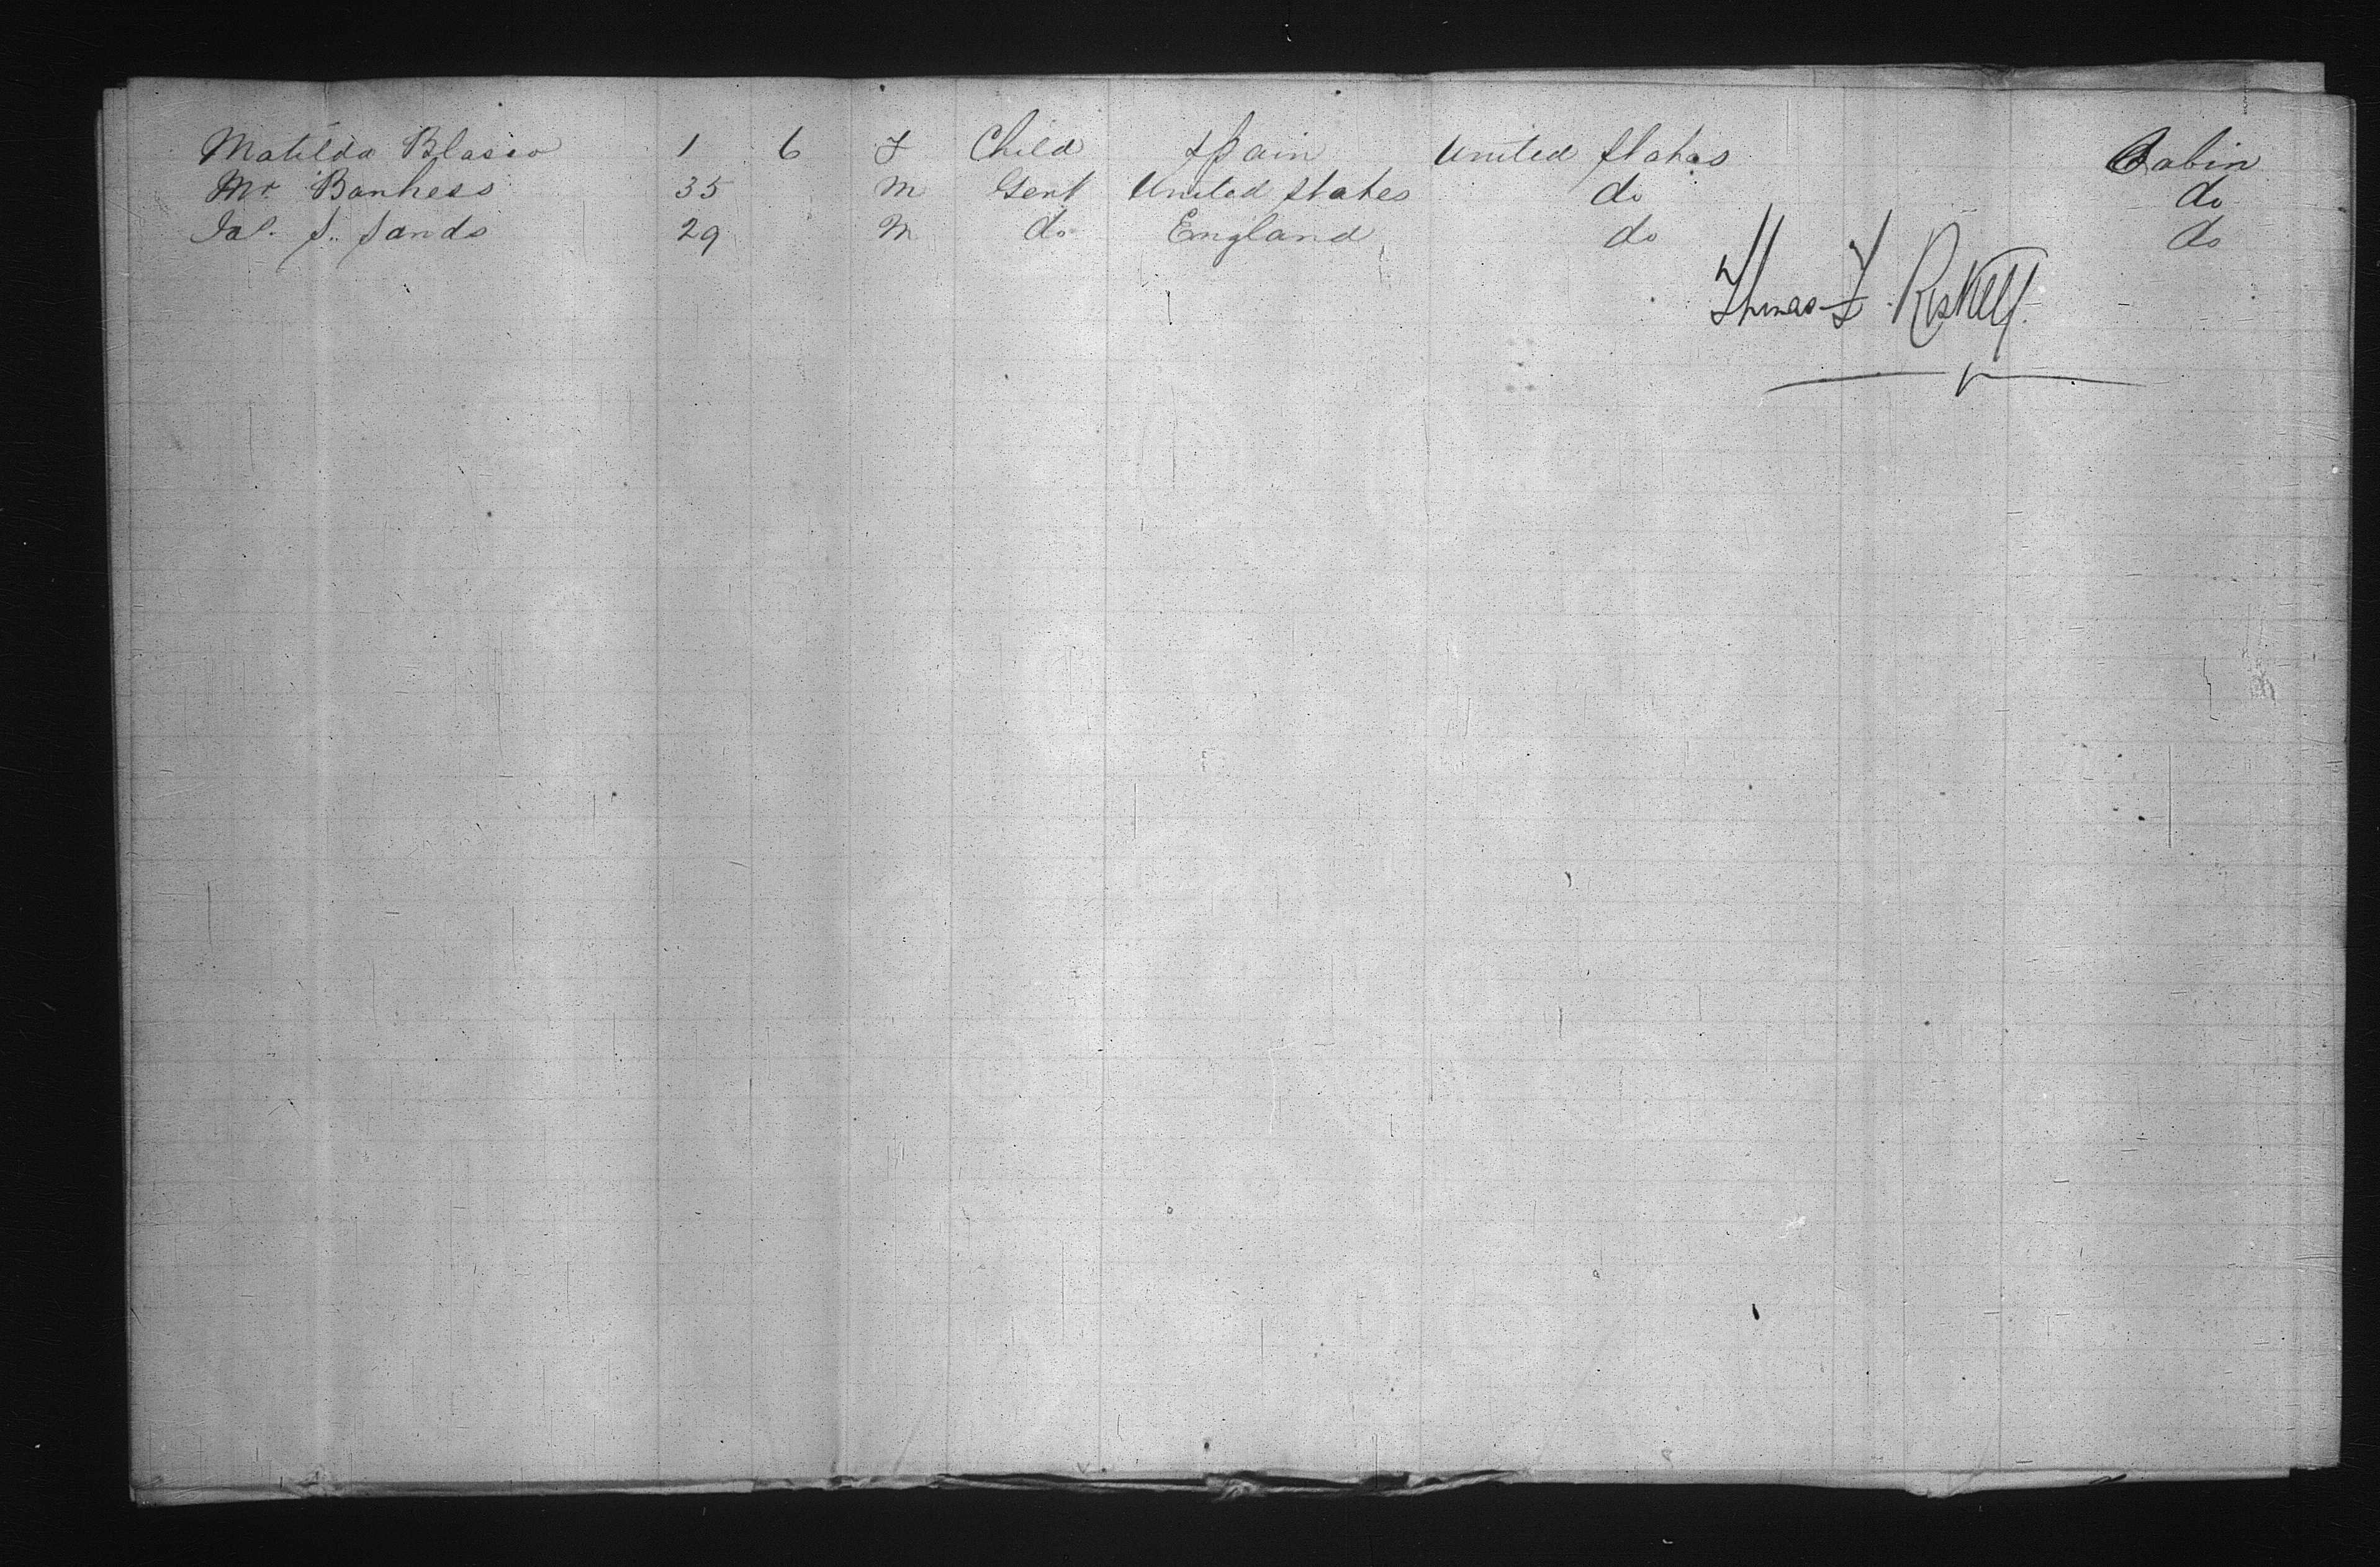 Matilda Blasco 1 6 F Child Spain United States Cabin
Mr. Banhess 35 M Gent United States do do
S. Sands 29 M do England do do
Thomas F.